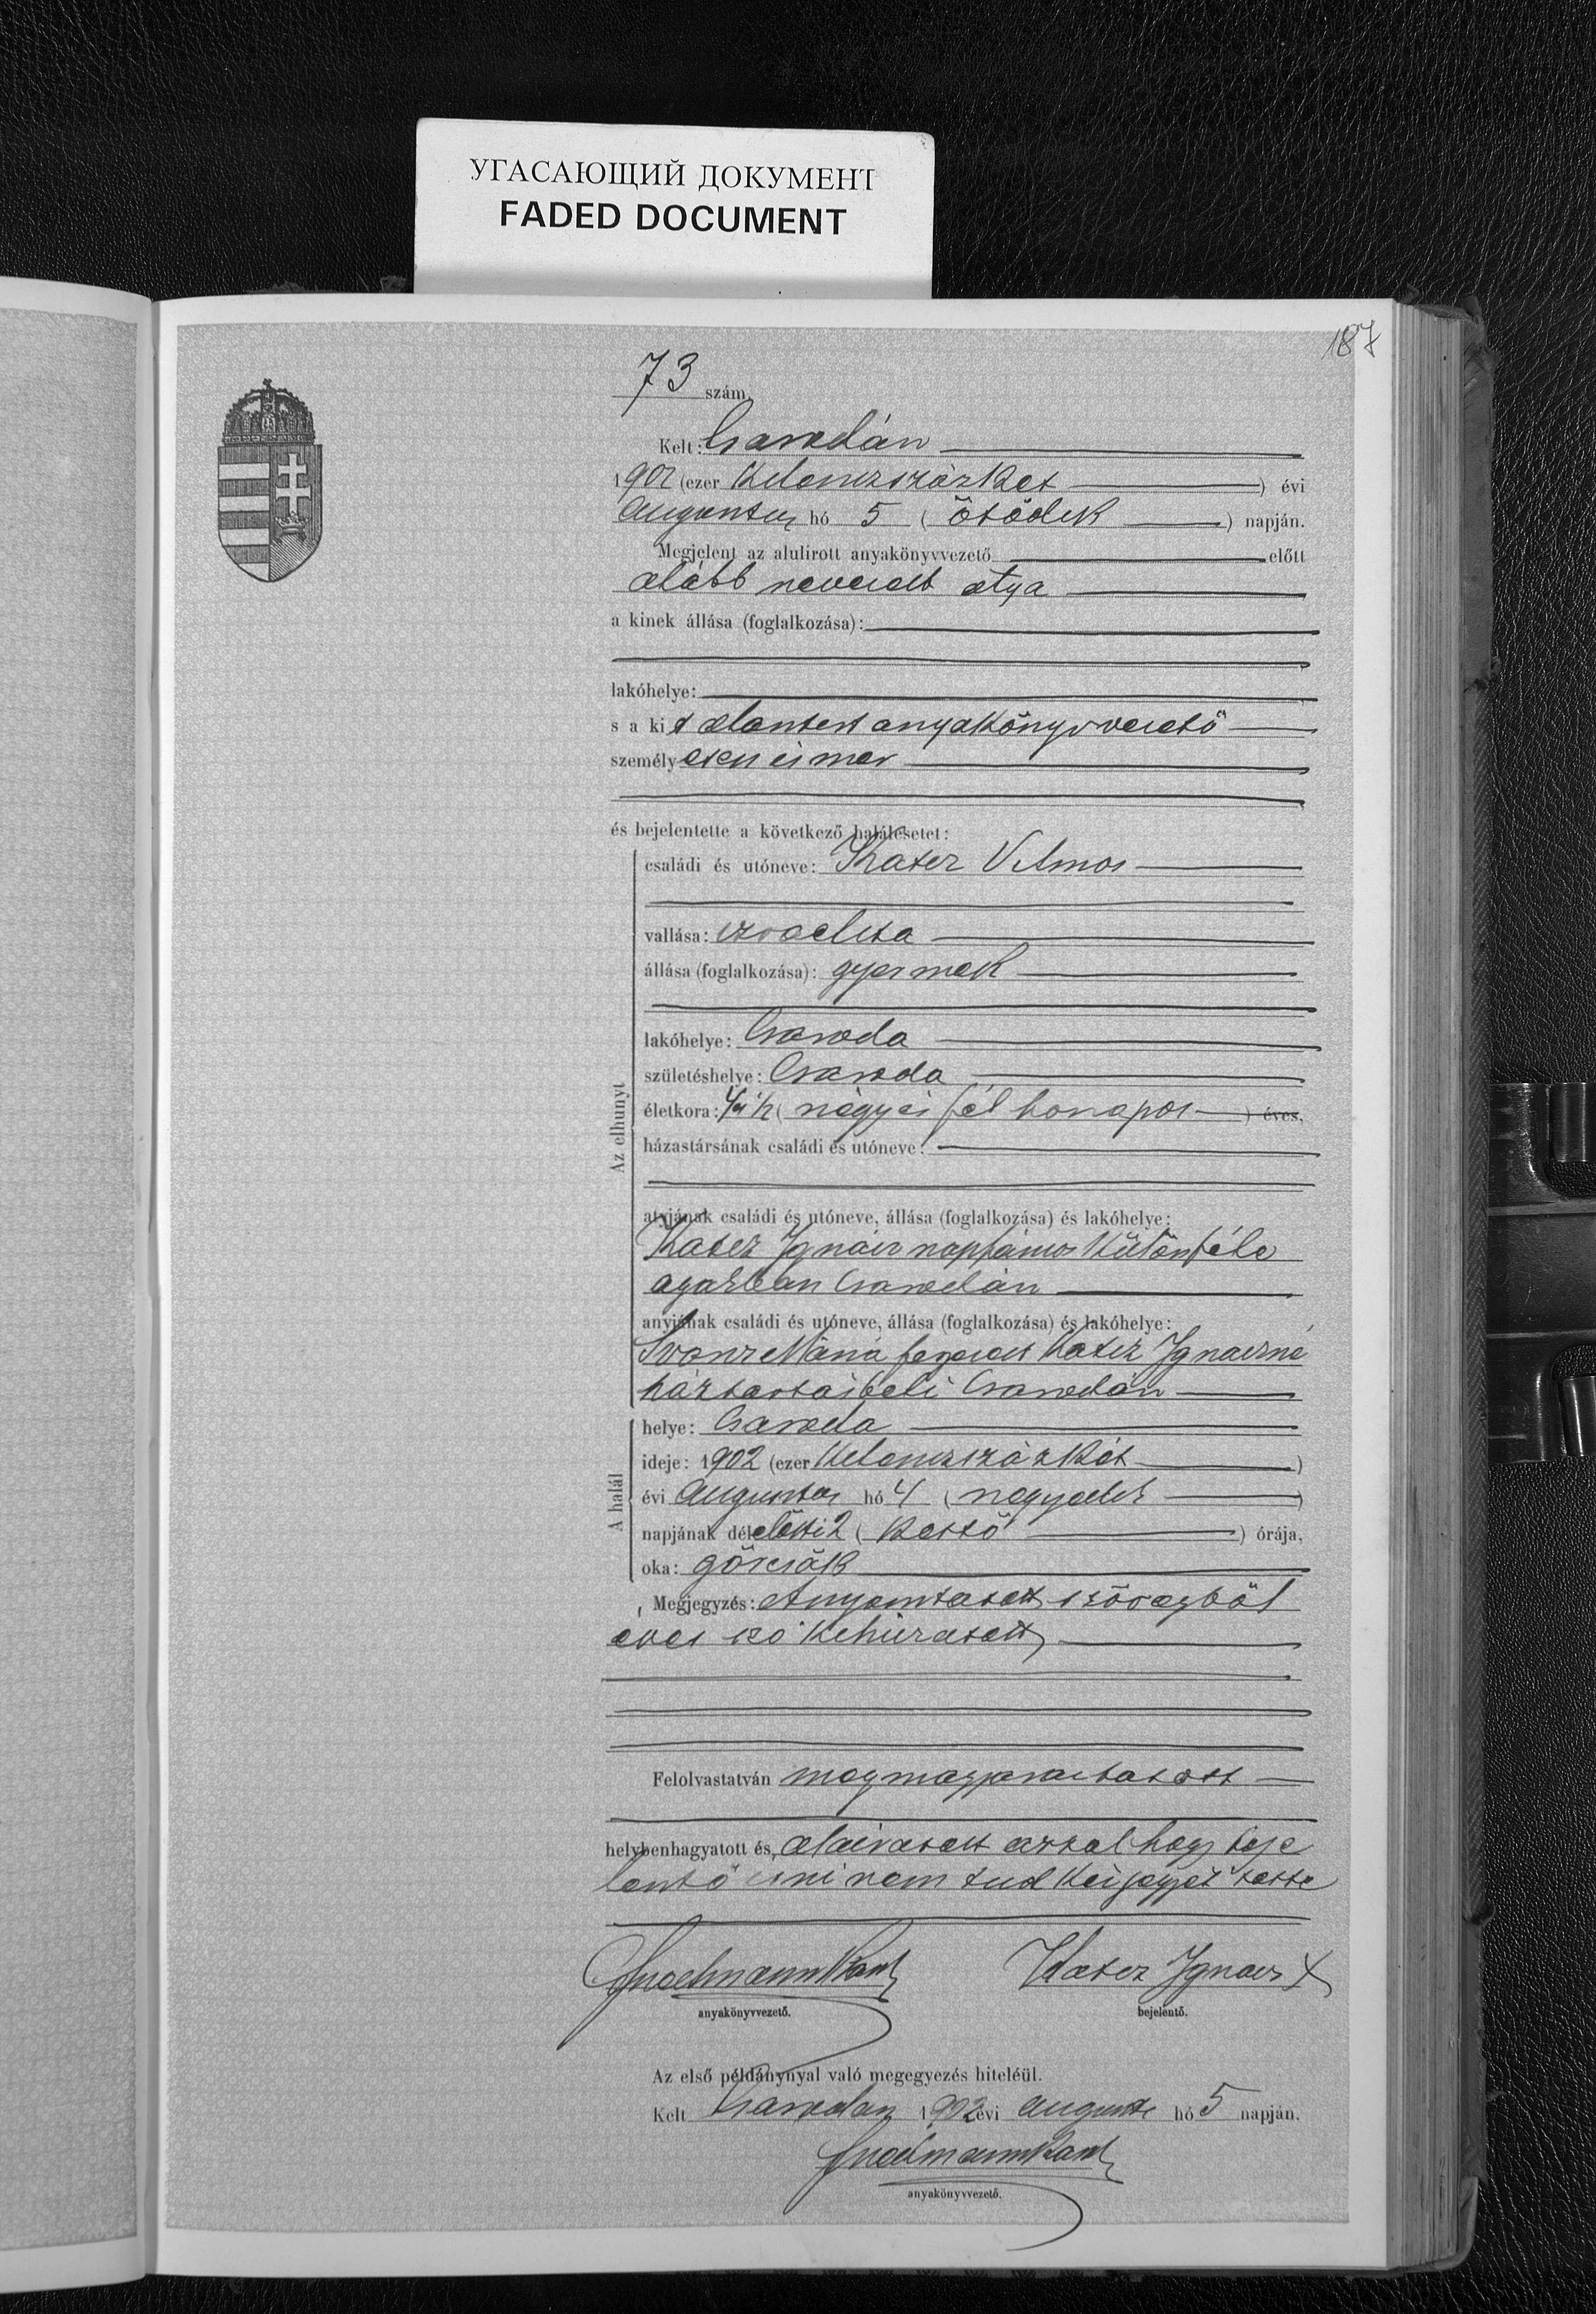 УГАСАЮЩИЙ ДОКУМЕНТ
FADED DOCUMENT
187
73 szám.
Kelt: Csarodán
1902 (ezer kilenczszázket) évi
Augustus hó 5 (ötödik) napján.
Megjelent az alulírott anyakönyvvezető előtt
alább nevezett atya
a kinek állása (foglalkozása):
lakóhelye:
s a kit alantirt anyakönyvvezető
személyesen ismer
és bejelentette a következő halálesetet:
Az elhunyt
családi és utóneve: Katez Vilmos
vallása: izraelita
állása (foglalkozása): gyermek
lakóhelye: Csaroda
születéshelye: Csaroda
életkora: 4 1/2 (négy és fél honapos) éves.
házastársának családi és utóneve:
atyjának családi és utóneve, állása (foglalkozása) és lakóhelye:
Katez Ignácz napszámos különféle
agazban Csarodán
anyjának családi és utóneve, állása (foglalkozása) és lakóhelye:
Mária Katez Ignaczné
háztartásbeli Csarodán
A halál
helye: Csaroda
ideje: 1902 (ezer kilenczszázkét)
évi Augustus hó 4 (negyedik)
napjának délelőtti 2 (kettő) órája.
oka: görcsök
Megjegyzés: A nyomtatott szövegből
éves szó kihúzatott
Felolvastatván megmagyaráztatott
helybenhagyatott és, aláiratott azzal hogy beje
lentő irni nem tud kézjegyét tette
anyakönyvvezető.
Katez Ignacz X
bejelentő.
Az első példánynyal való megegyezés hiteléül.
Kelt Csarodan 1902 évi augusztus hó 5 napján.
anyakönyvvezető.